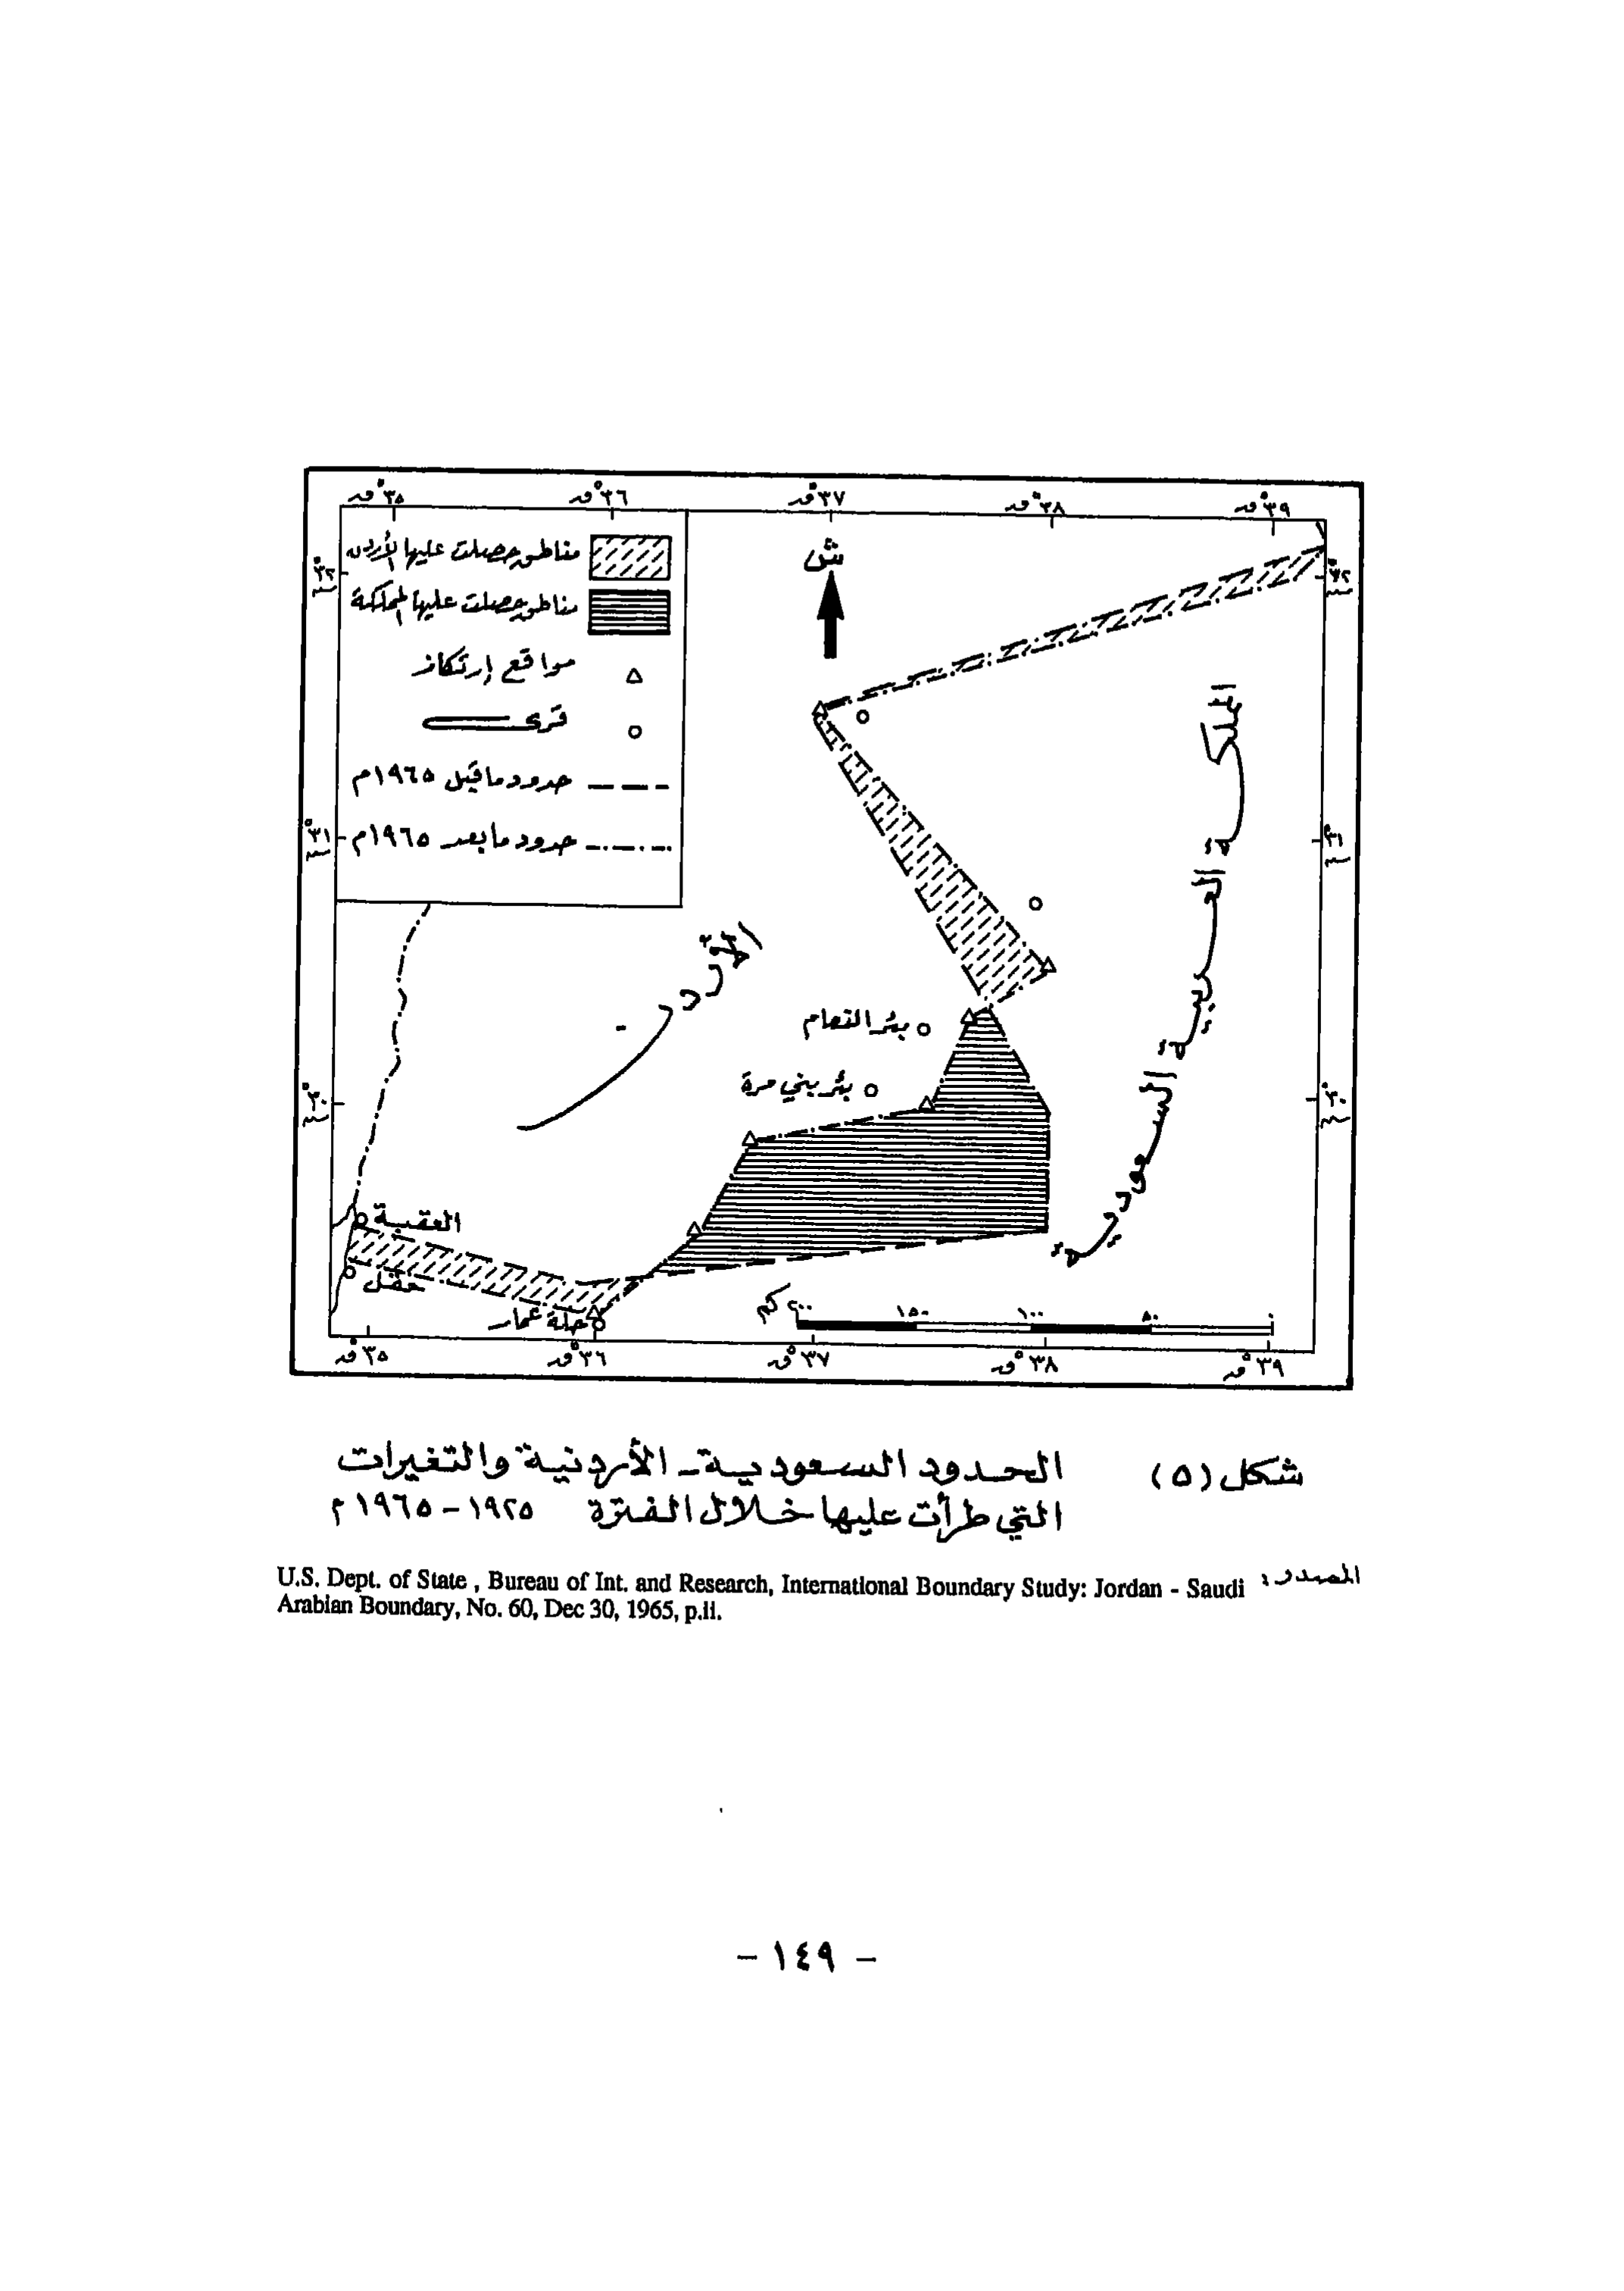 ٣٥° ق ٣٦° ق ٣٧° ق ٣٨° ق ٣٩° ق
مناطق حصلت عليها الأردن
مناطق حصلت عليها المملكة
مواقع إرتكاز
قرى
حدود ما قبل ١٩٦٥م
حدود ما بعد ١٩٦٥م
ش
٣٢° ٣٢°
٣١° ٣١°
٣٠° ٣٠°
المملكة العربية السعودية
الأردن
بئر النعام
بئر بني مرة
العقبة
حقل
حلة عمار
٠ ٥٠ ١٠٠ ١٥٠ ٢٠٠ كم
٣٥° ق ٣٦° ق ٣٧° ق ٣٨° ق ٣٩° ق
شكل (٥) الحدود السعودية - الأردنية والتغيرات
التي طرأت عليها خلال الفترة ١٩٢٥ - ١٩٦٥م
المصدر: U.S. Dept. of State , Bureau of Int. and Research, International Boundary Study: Jordan - Saudi
Arabian Boundary, No. 60, Dec 30, 1965, p.ii.
- ١٤٩ -